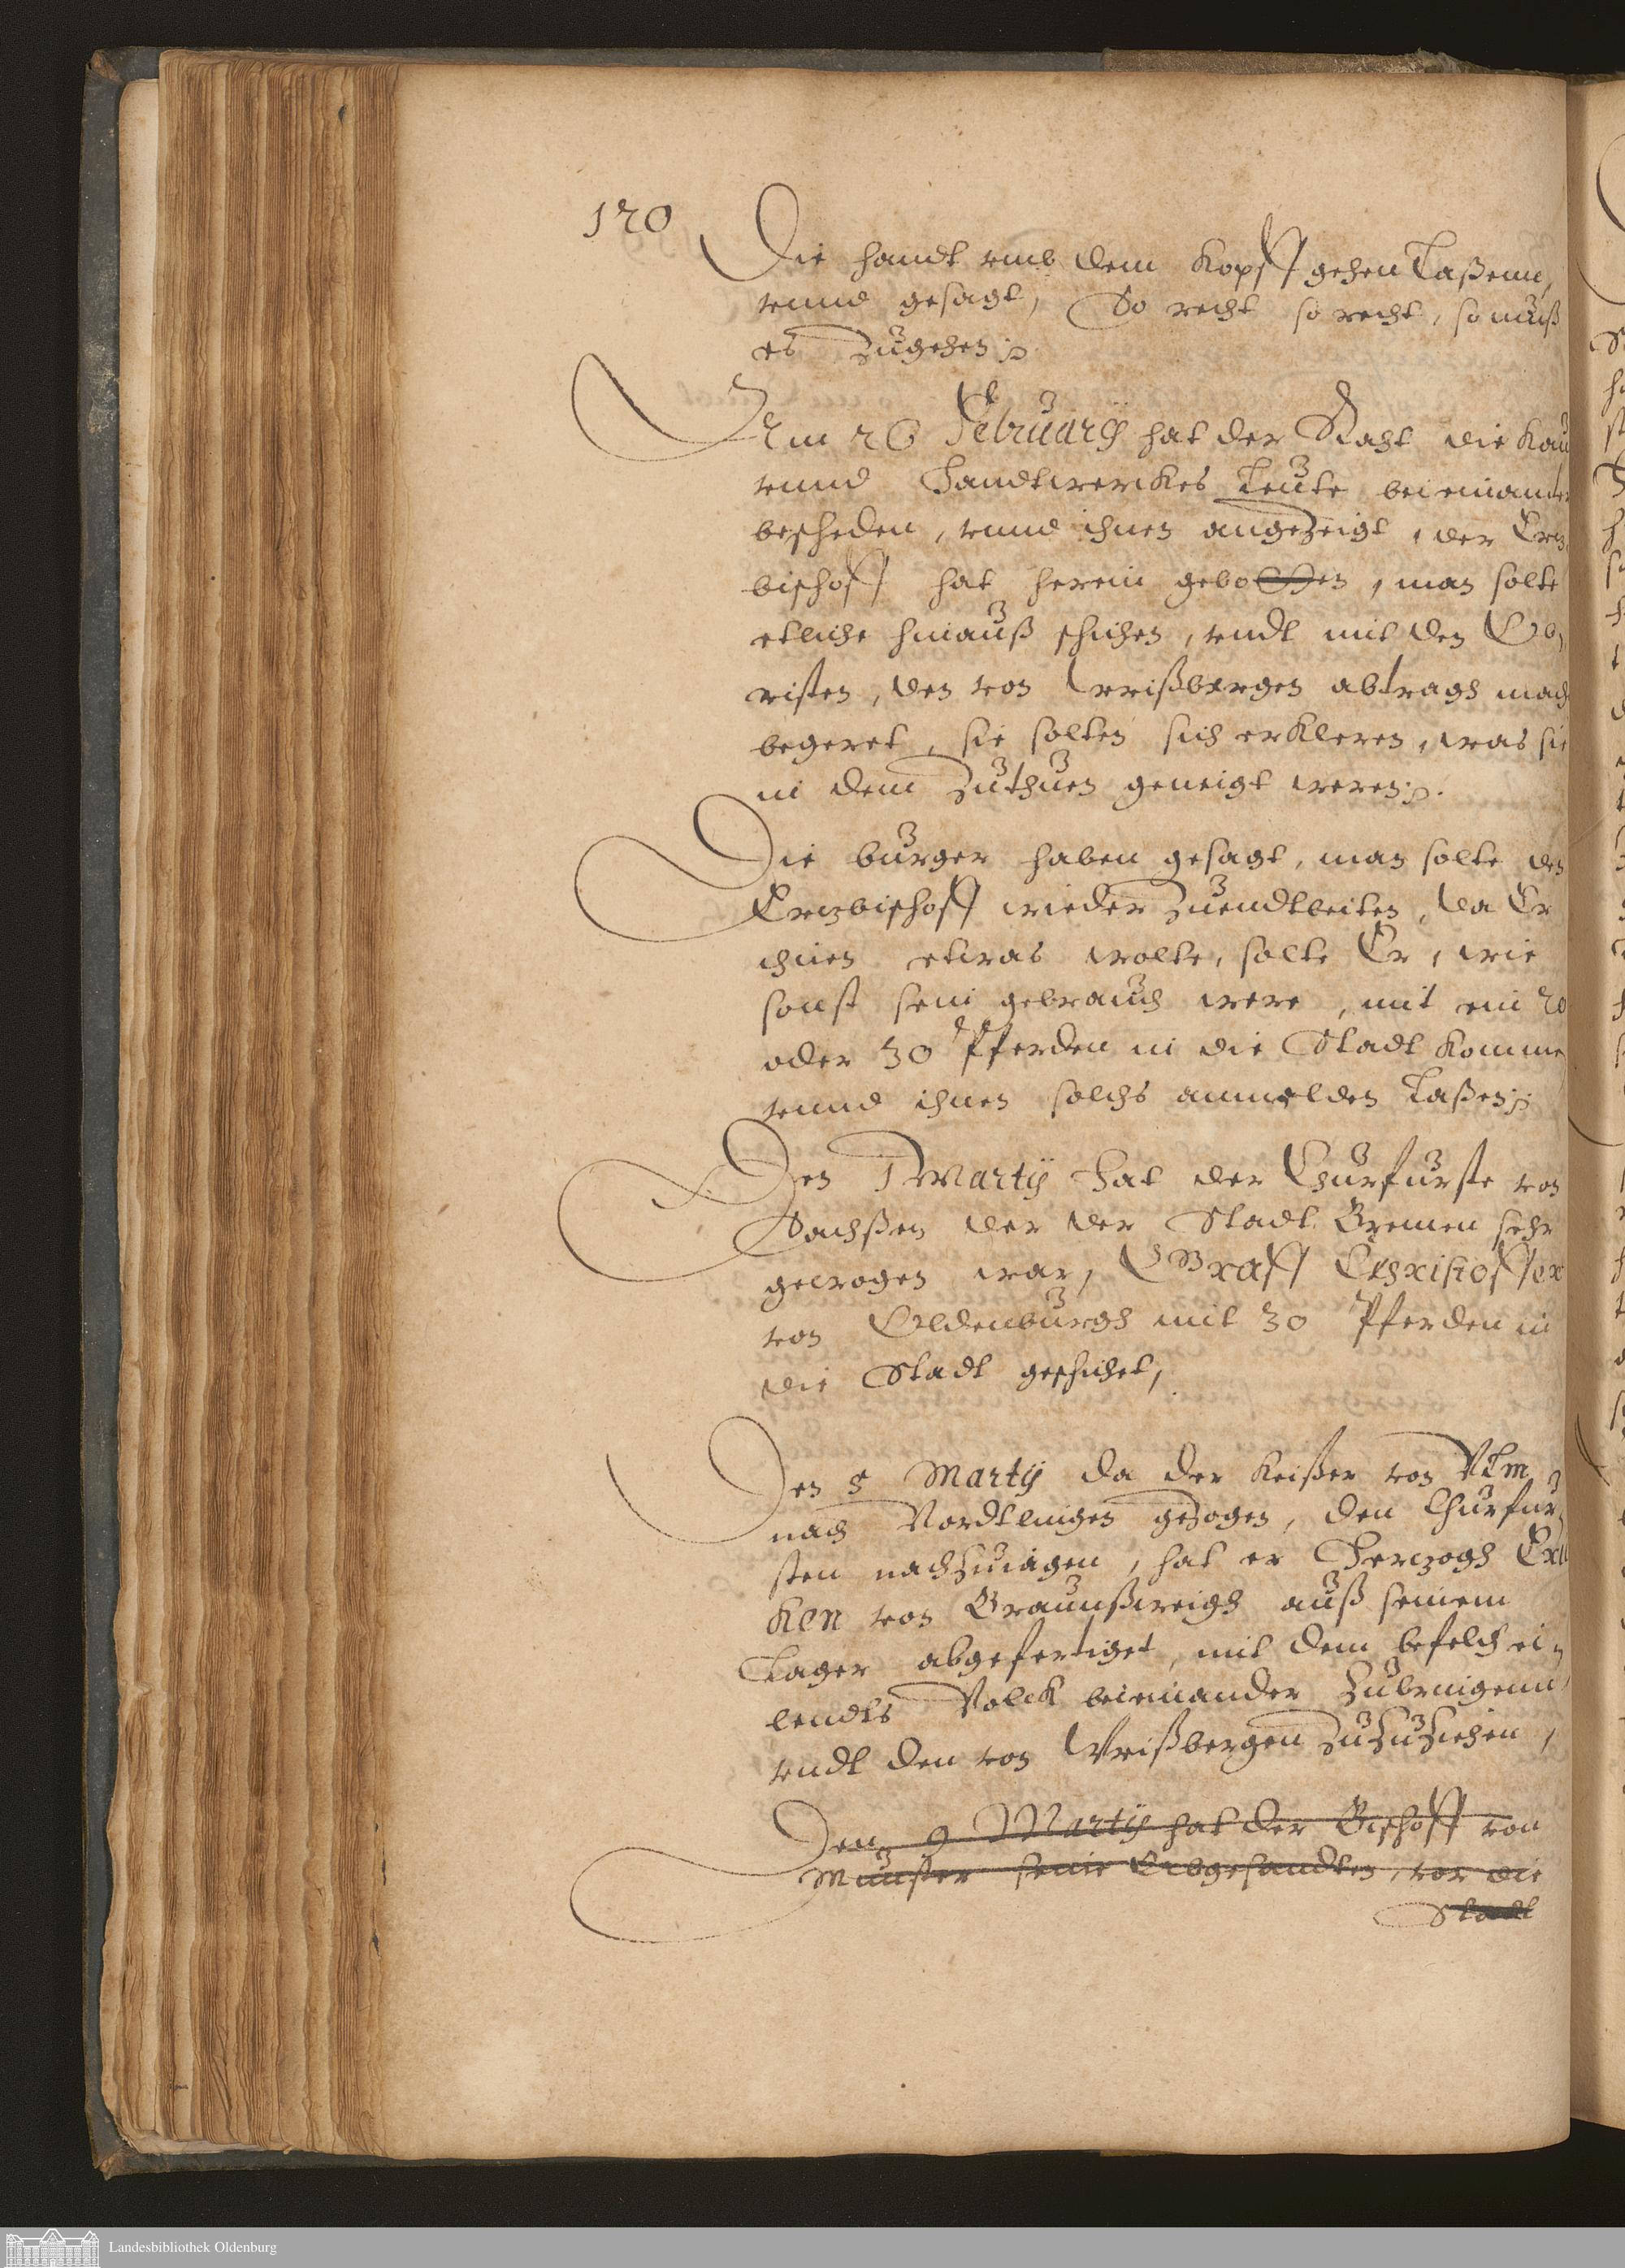 120
Die handt umb dem Kopff gehen Laßenn,
unnd gesagt, So recht so recht, so muß
es Zugehen
Am 26 Februarij hat der Raht die Kau
unnd Handtwerckes Leute beieinander
bescheden, unnd ihnen angezeigt, der Ertz
bischoff hat herein gebotten, man solte
etliche hinauß schicken, undt mit den Ob,
risten, den von Wrißbergen abtragh mach
begeret, sie solten sich erKleren, was sie
in dem Zuthuen geneigt weren.
Die burger haben gesagt, man solte den
Ertzbischoff wieder Zuendtbeiten, da Er
ihnen etwas wolte, solte Er, wie
sonst sein gebrauch were, mit ein 20
oder 30 Pferden in die Stadt Komme
unnd ihnen solchs anmelden Laßen
Den 1 Martij hat der Churfurste von
Sachßen der der Stadt Bremen sehr
gewogen war, Graff Christoffer
von Oldenburgh mit 30 Pferden in
die Stadt geschicket,
Den 5 Martij da der Keißer von Ulm
nach Nordtlingen gezogen, den Churfur,
sten nachZuiagen, hat er Hertzogh Eri
Ken von Braunßweigh auß seinem
Lager abgefertiget, mit dem befelch ei,
lendts Volck beieinander Zubringenn,
undt den von Wrißbergen ZuZuZiehen,
Den 9 Martij hat der Bischoff von
Munster seine Abgesandten, vor die
Stadt
Landesbibliothek Oldenburg